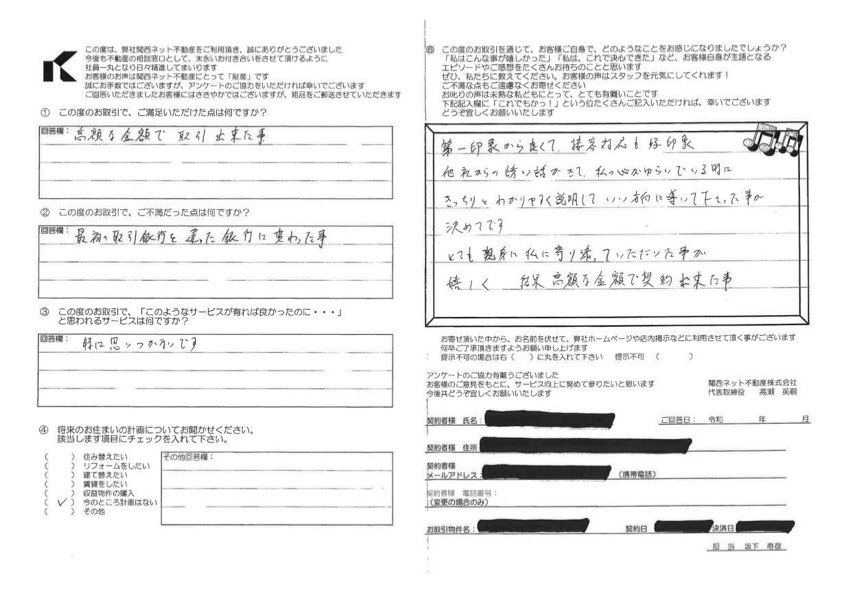 この度は、弊社関西ネット不動産をご利用頂き、誠にありがとうございました
今後も不動産の相談窓口として、末永いお付き合いをさせて頂けるように
社員一丸となり日々精進してまいります
お客様のお声は関西ネット不動産にとって「財産」です
誠にお手数ではございますが、アンケートのご協力をいただければ幸いでございます
ご回答いただきましたお客様にはささやかではございますが、粗品をご郵送させていただきます
① この度のお取引で、ご満足いただけた点は何ですか？
回答欄：高額な金額で 取引出来た事
② この度のお取引で、ご不満だった点は何ですか？
回答欄：最初の取引銀行と違った銀行に変わった事
③ この度のお取引で、「このようなサービスが有れば良かったのに・・・」
と思われるサービスは何ですか？
回答欄：特に思いつかないです
④ 将来のお住まいの計画についてお聞かせください。
該当します項目にチェックを入れて下さい。
（ ）住み替えたい
（ ）リフォームをしたい
（ ）建て替えたい
（ ）賃貸をしたい
（ ）収益物件の購入
（✓）今のところ計画はない
（ ）その他
その他回答欄：
⑥ この度のお取引を通じて、お客様ご自身で、どのようなことをお感じになりましたでしょうか？
「私はこんな事が嬉しかった」「私は、これで決心できた」など、お客様自身が主語となる
エピソードやご感想をたくさんお持ちのことと思います
ぜひ、私たちに教えてください。お客様の声はスタッフを元気にしてくれます！
ご不満な点もご遠慮なくお寄せください
お叱りの声は未熟な私どもにとって、とても有難いことです
下記記入欄に「これでもか！」という位たくさんご記入いただければ、幸いでございます
どうぞ宜しくお願いいたします
第一印象から良くて、接客対応も好印象
他社からの誘い話がきて、私の心がゆらいでいる時に
きっちりとわかりやすく説明して いい方向に導いて下さった事が
決めてです
とても親身に私に寄り添っていただいた事が
嬉しく 結果 高額な金額で契約出来た事
お寄せ頂いた中から、お名前を伏せて、弊社ホームページや店内掲示などに利用させて頂く事がございます
何卒ご了承頂きますようお願い申し上げます
提示不可の場合は右（ ）に丸を入れて下さい 提示不可（ ）
アンケートのご協力有難うございました
お客様のご意見をもとに、サービス向上に努めて参りたいと思います
今後共どうぞ宜しくお願いいたします
関西ネット不動産株式会社
代表取締役 高瀬 英嗣
契約者様 氏名：
ご回答日： 令和 年 月
契約者様 住所
契約者様
メールアドレス：
（携帯電話）
契約者様 電話番号：
（変更の場合のみ）
お取引物件名：
契約日
決済日
担 当 坂下